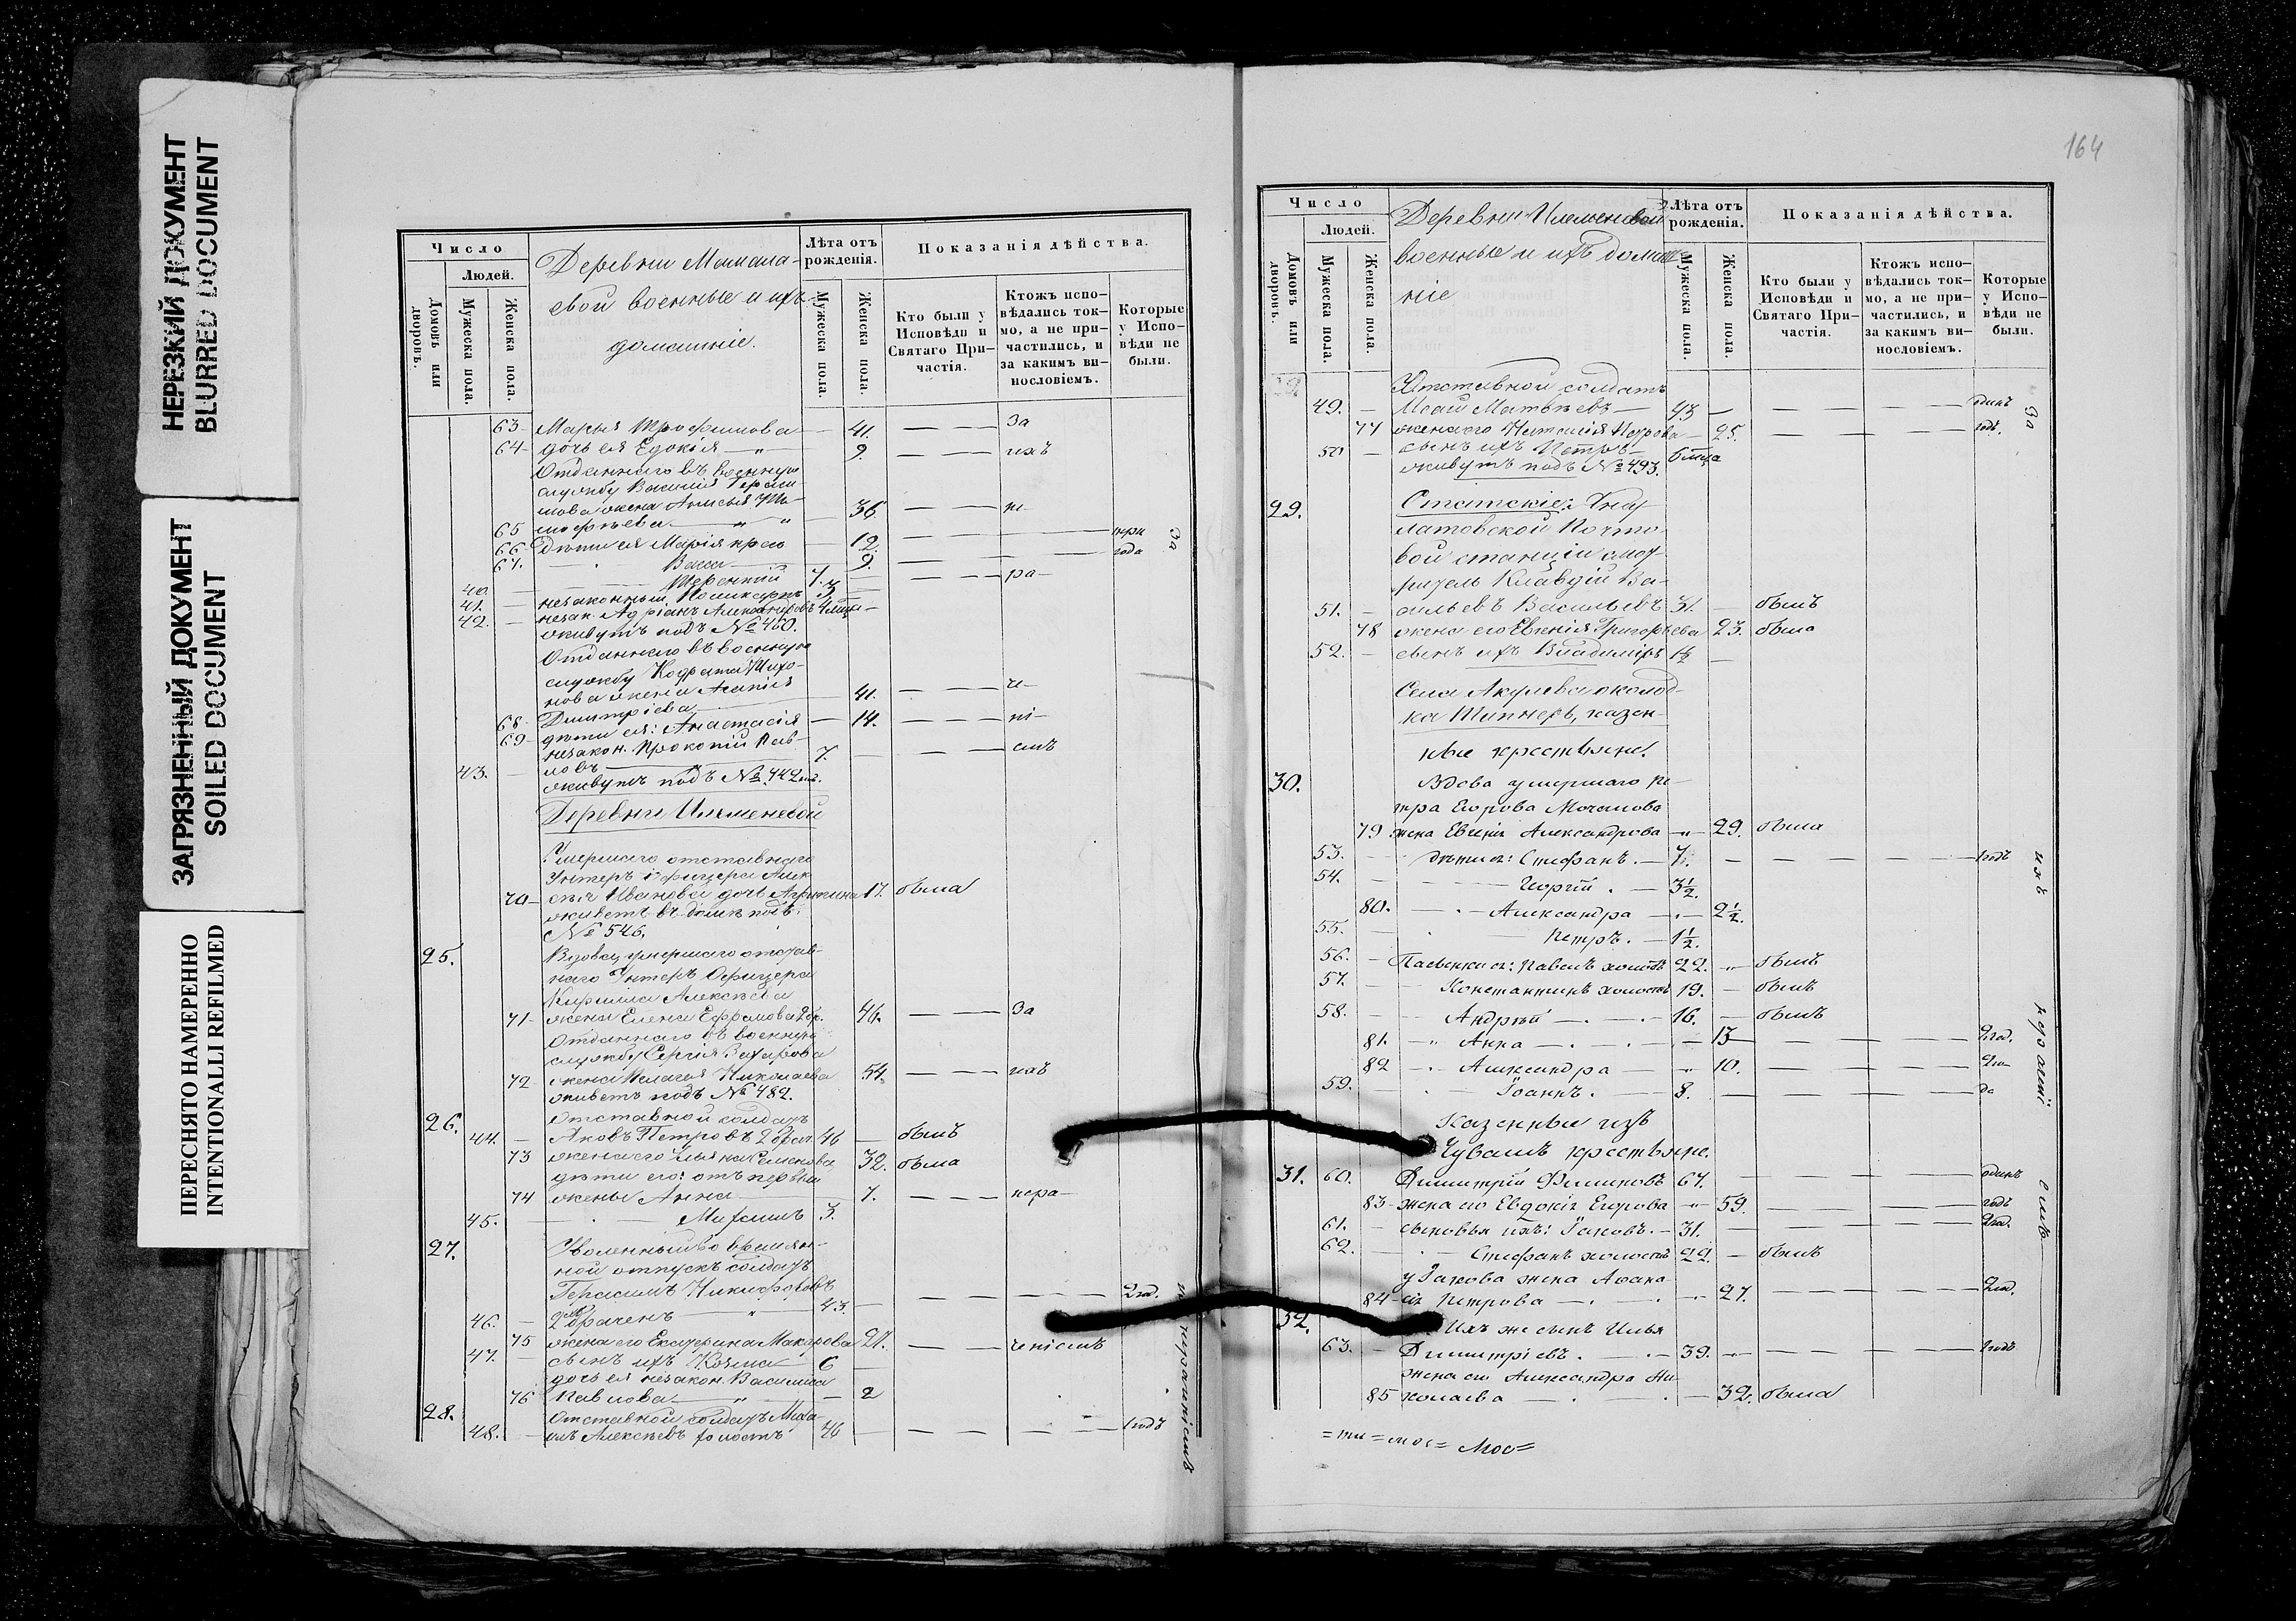 НЕРЕЗКИЙ ДОКУМЕНТ
BLURRED DOCUMENT
ЗАГРЯЗНЕННЫЙ ДОКУМЕНТ
SOILED DOCUMENT
ПЕРЕСНЯТО НАМЕРЕННО
INTENTIONALLI REFILMED
Число
Людей.
Домовъ или дворовъ.
Мужеска пола.
Женска пола.
Деревни Мамала-
евой военные и ихъ
домашніе.
Лѣта отъ рожденія.
Мужеска пола.
Женска пола.
Показанія дѣйства.
Кто были у Исповѣди и Святаго При-частія.
Ктожъ испо-вѣдались ток-мо, а не при-частились, и за какимъ ви-нословіемъ.
Которые у Испо-вѣди не были.
63 Марья Трофимова 41. За
64 дочь ея Едокія 9. ихъ
Отданнаго въ военную
службу Василія Гераси-
мова жена Анисья Ти-
65 мофѣева 36. не-
66 Дѣти ея Марія 12. три
67. Васса 9. года
За
40. Терентій 7. ра-
41. незаконный Поликарпъ 3
42. незак. Адріанъ Александровъ 4 мѣся
живутъ подъ № 460.
Отданнаго въ военную
службу Кодрата Тихо-
нова жена Агапія
68 Димитріева 41. че-
69 дѣти ея: Анастасія 14. ні-
незакон. Прокопій Пав-
43. ловъ 7. емъ
живутъ подъ № 442
Деревни Ильменевой
Умершаго отставнаго
Унтеръ Офицера Алек-
70 сѣя Иванова дочь 17. была
живетъ въ домѣ подъ
№ 546.
25. Вдовы умершаго отстав-
наго Унтеръ Офицера
Кирилла Алексѣева
71 жена Елена Ефремова 46. За
Отданнаго въ военную
службу Сергія Захарова
72 жена Пелагея Николаева 54. ихъ
живетъ подъ № 482.
26. Отставной солдатъ
44. Яковъ Петровъ 2 брач. 46 былъ
73 жена его Семенова 32. была
дѣти его: отъ первой
74 жены Анна 7. нера-
45. Максимъ 3.
27. Уволенный во времян-
ной отпускъ солдатъ
Герасимъ Никифоровъ
46. 2 браченъ 43. 2 год.
75 жена его Екатерина Макарова 21. ченіемъ
47. сынъ ихъ Козма 6
дочь ея незакон. Василиса
76 Павлова 2
28. Отставной солдатъ Миха-
48. илъ Алексѣевъ холостъ 46 1 годъ
нераченіемъ
164
Число
Людей.
Домовъ или дворовъ.
Мужеска пола.
Женска пола.
Деревни Илеменевой
военные и ихъ домаш
ніе
Лѣта отъ рожденія.
Мужеска пола.
Женска пола.
Показанія дѣйства.
Кто были у Исповѣди и Святаго При-частія.
Ктожъ испо-вѣдались ток-мо, а не при-частились, и за какимъ ви-нословіемъ.
Которые у Испо-вѣди не были.
Отставной солдатъ
49. Матвѣевъ 43 одинъ
77 жена его Наталія Петрова 25. годъ.
50 сынъ ихъ Петръ 6 мѣся
живутъ подъ № 493.
За
29. Статскіе:
латовской Почто-
вой станціи смот-
ритель Клавдій Ва-
51. сильевъ Васильевъ 31. былъ
78 жена его Евгенія Григорьева 23. была
52. сынъ ихъ Владиміръ 1½
Села Акулева околод-
ка Типнеръ, казен-
ные крестьяне.
30. Вдова умершаго Пе-
тра Егорова Мочалова
79 жена Евгенія Александрова 29. была
53. дѣти ея: Стефанъ. 7. 1 годъ
54. Георгій. 3½
80. Александра 2½.
55. Петръ. 1½.
ихъ
56. Пасынки ея: Павелъ холостъ 22. былъ
57. Константинъ холостъ 19. былъ
58. Андрей 16. былъ
81. Анна 13 2 год.
82 Александра 10. 2 го
59. Іоаннъ. 8. да
нераченіемъ
Казенные изъ
Чувашъ крестьяне.
31. 60. Димитрій Филиповъ 67. одинъ
83 жена его Евдокія Егорова 59. годъ
61. сыновья ихъ: Іаковъ. 31. 2 год.
62. Стефанъ холостъ 22. былъ
у Іакова жена Афана-
84 сія Петрова 27. 2 год.
32. Ихъ же сынъ Илья
63. Димитріевъ. 39. 1 годъ
жена его Александра Ни-
85 колаева 32. была